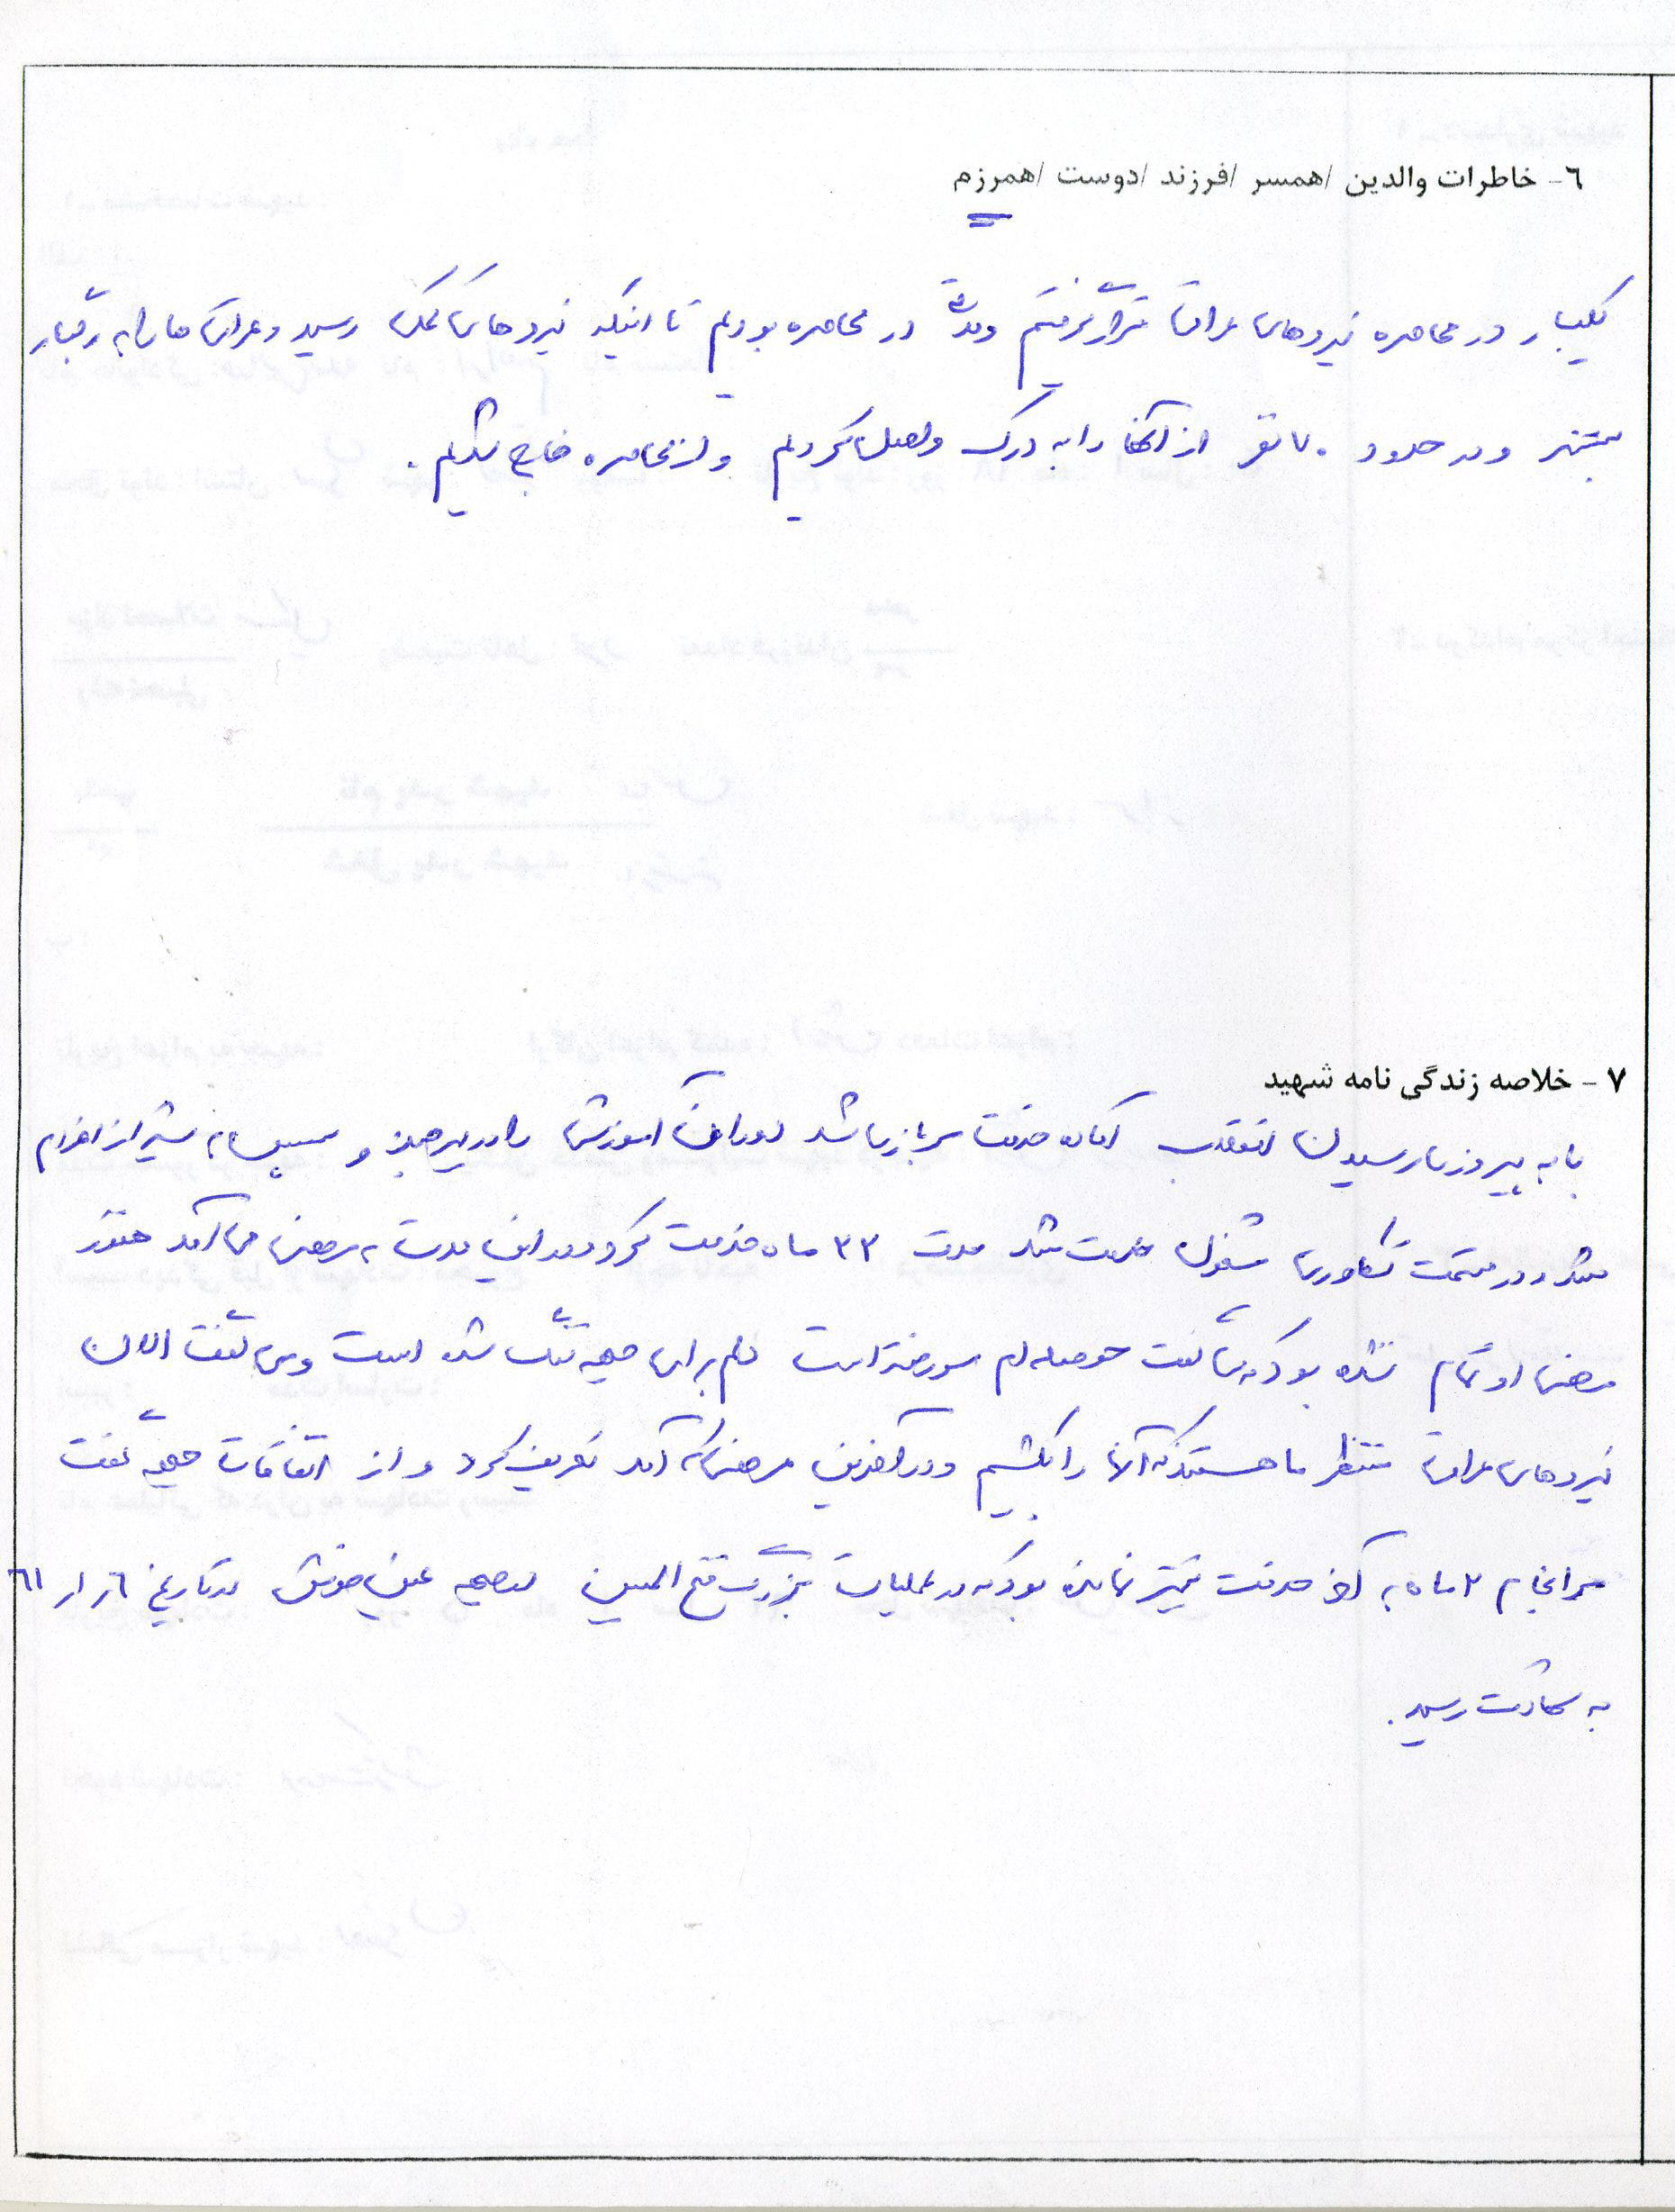 ٦- خاطرات والدین /همسر /فرزند /دوست /همرزم
یکبار در محاصره نیروهای عراقی قرار گرفتیم و مدتی در محاصره بودیم تا اینکه نیروهای کمکی رسید و عراقی ها را به رگبار
بستند و در حدود ۷۰ نفر از آنها را به درک واصل کردیم و از محاصره خارج شدیم .
۷- خلاصه زندگی نامه شهید
با به پیروزی رسیدن انقلاب آماده خدمت سربازی شد دوران آموزش را در بیرجند و سپس به شیراز اعزام
شد و در قسمت تکاوری مشغول خدمت شد مدت ۲۳ ماه خدمت کرد و در این مدت به مرخصی می آمد هنوز
مرخصی او تمام نشده بود که می گفت حوصله ام سر رفته است دلم برای جبهه تنگ شده است و می گفت الان
نیروهای عراقی منتظر ما هستند که آنها را بکشیم و در آخرین مرخصی که آمد تعریف کرد و از اتفاقات جبهه گفت
سرانجام ۲ ماه به آخر خدمت بیشتر نمانده بود که در عملیات بزرگ فتح المبین در جبهه عین خوش در تاریخ ٦/۱/٦۱
به شهادت رسید .